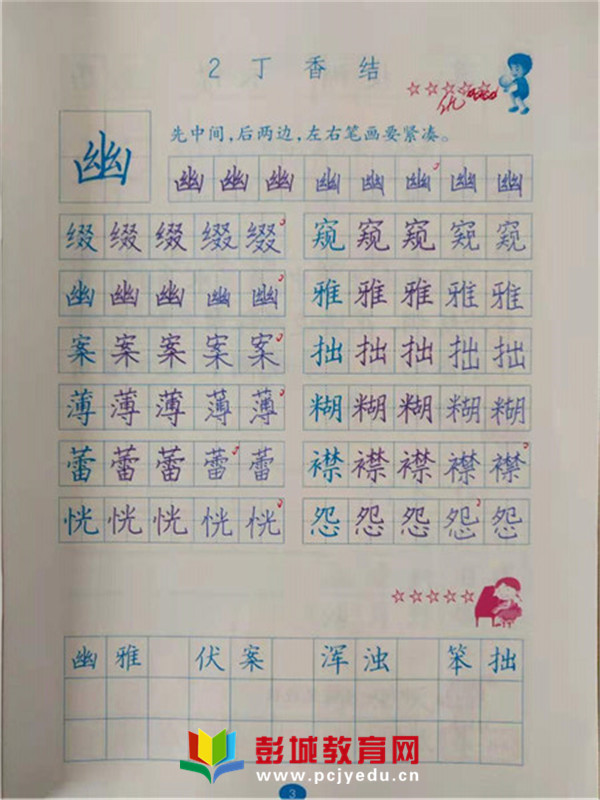 2 丁香结
优
先中间，后两边，左右笔画要紧凑。
幽
幽幽幽幽幽幽幽幽
缀缀缀缀缀 窥窥窥窥窥
幽幽幽幽幽 雅雅雅雅雅
案案案案案 拙拙拙拙拙
薄薄薄薄薄 糊糊糊糊糊
蕾蕾蕾蕾蕾 襟襟襟襟襟
恍恍恍恍恍 怨怨怨怨怨
幽雅 伏案 浑浊 笨拙
彭城教育网
www.pcjyedu.cn
3